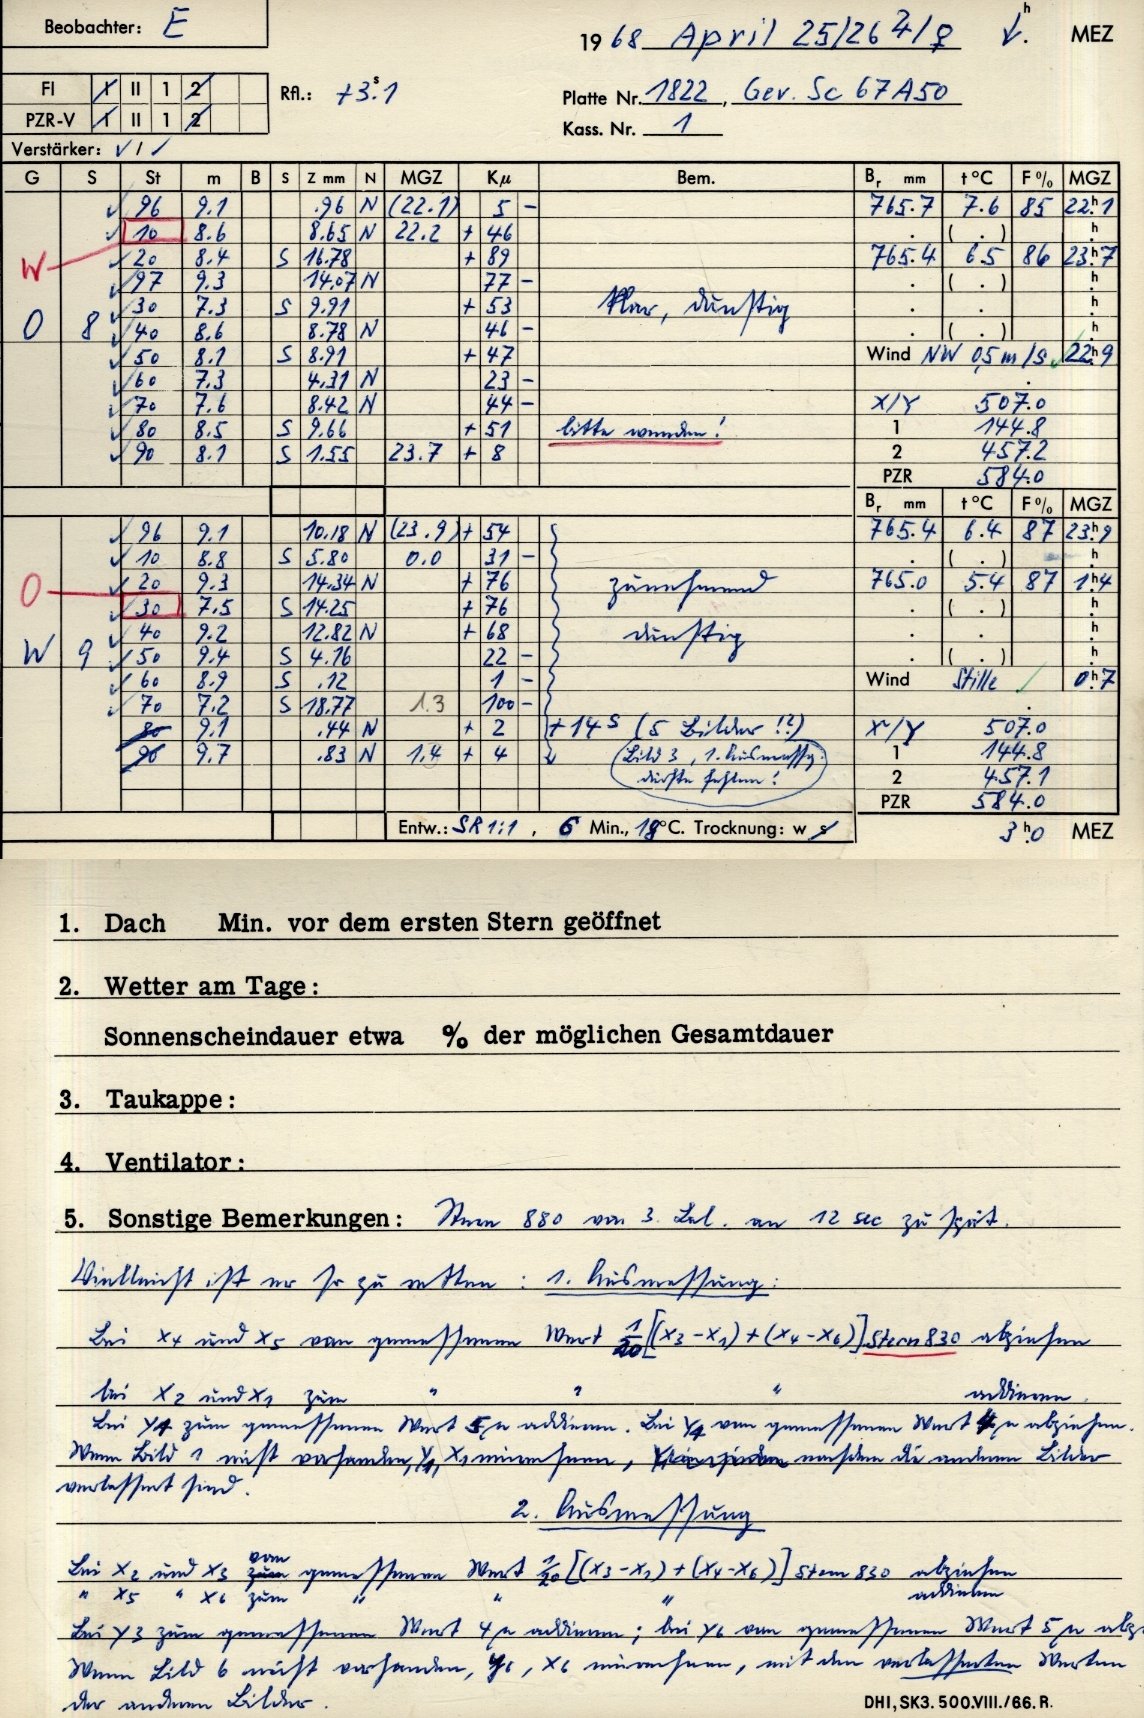 Beobachter: E
1968 April 25/26 ♃/♀ h MEZ
FI I II 1 2
Rfl.: +3s.1
Platte Nr. 1822, Gev. Sc 67A50
PZR-V I II 1 2
Kass. Nr. 1
Verstärker: √ / √
G S St m B S Z mm N MGZ Kμ Bem. Br mm t °C F % MGZ
96 9.1 .96 N (22.1) 5 - 765.7 7.6 85 22h1
10 8.6 8.65 N 22.2 + 46 . ( . ) h
W 20 8.4 S 16.78 + 89 765.4 6.5 86 23h7
97 9.3 14.07 N 77 - . ( . ) h
30 7.3 S 9.91 + 53 klar, dunstig . . h
O 8 40 8.6 8.78 N 46 - . ( . ) h
50 8.1 S 8.91 + 47 Wind NW 0,5 m/s 22h9
60 7.3 4.31 N 23 -
70 7.6 8.42 N 44 - X/Y 507.0
80 8.5 S 9.66 + 51 bitte wenden! 1 144.8
90 8.1 S 1.55 23.7 + 8 2 457.2
PZR 584.0
Br mm t °C F % MGZ
96 9.1 10.18 N (23.9) + 54 765.4 6.4 87 23h9
10 8.8 S 5.80 0.0 31 - . ( . ) h
20 9.3 14.34 N + 76 zunehmend 765.0 5.4 87 1h4
O 30 7.5 S 14.25 + 76 . ( . ) h
40 9.2 12.82 N + 68 dunstig . . h
W 9 50 9.4 S 4.16 22 - . ( . ) h
60 8.9 S .12 1 - Wind Stille 0h7
70 7.2 S 18.77 1.3 100 -
80 9.1 .44 N + 2 +14s (5 Bilder !?) X/Y 507.0
90 9.7 .83 N 1.4 + 4 (Bild 3, 1. Ausmessg. 1 144.8
dürfte fehlen! 2 457.1
PZR 584.0
Entw.: SR 1:1, 6 Min., 18°C. Trocknung: w s 3h0 MEZ
1. Dach Min. vor dem ersten Stern geöffnet
2. Wetter am Tage:
Sonnenscheindauer etwa % der möglichen Gesamtdauer
3. Taukappe:
4. Ventilator:
5. Sonstige Bemerkungen: Stern 880 von 3. Bel. an 12 sec zu spät.
Vielleicht ist er so zu retten: 1. Ausmessung:
Bei X4 und X5 vom gemessenen Wert 1/20 [(X3 - X1) + (X4 - X6)] Stern 830 abziehen
bei X2 und X1 zum " " " addieren.
Bei Y4 zum gemessenen Wert 5μ addieren. Bei Y4 vom gemessenen Wert 4μ abziehen.
Wenn Bild 1 nicht vorhanden, Y1, X1 einrechnen, nachdem die anderen Bilder
verbessert sind.
2. Ausmessung
Bei X2 und X3 vom gemessenen Wert 1/20 [(X3 - X1) + (X4 - X6)] Stern 830 abziehen
" X5 " X6 zum " " " addieren
Bei Y3 zum gemessenen Wert 4μ addieren; bei Y6 vom gemessenen Wert 5μ abz
Wenn Bild 6 nicht vorhanden, Y6, X6 einrechnen, mit den verbesserten Werten
der anderen Bilder.
DHI, SK3. 500.VIII./66. R.